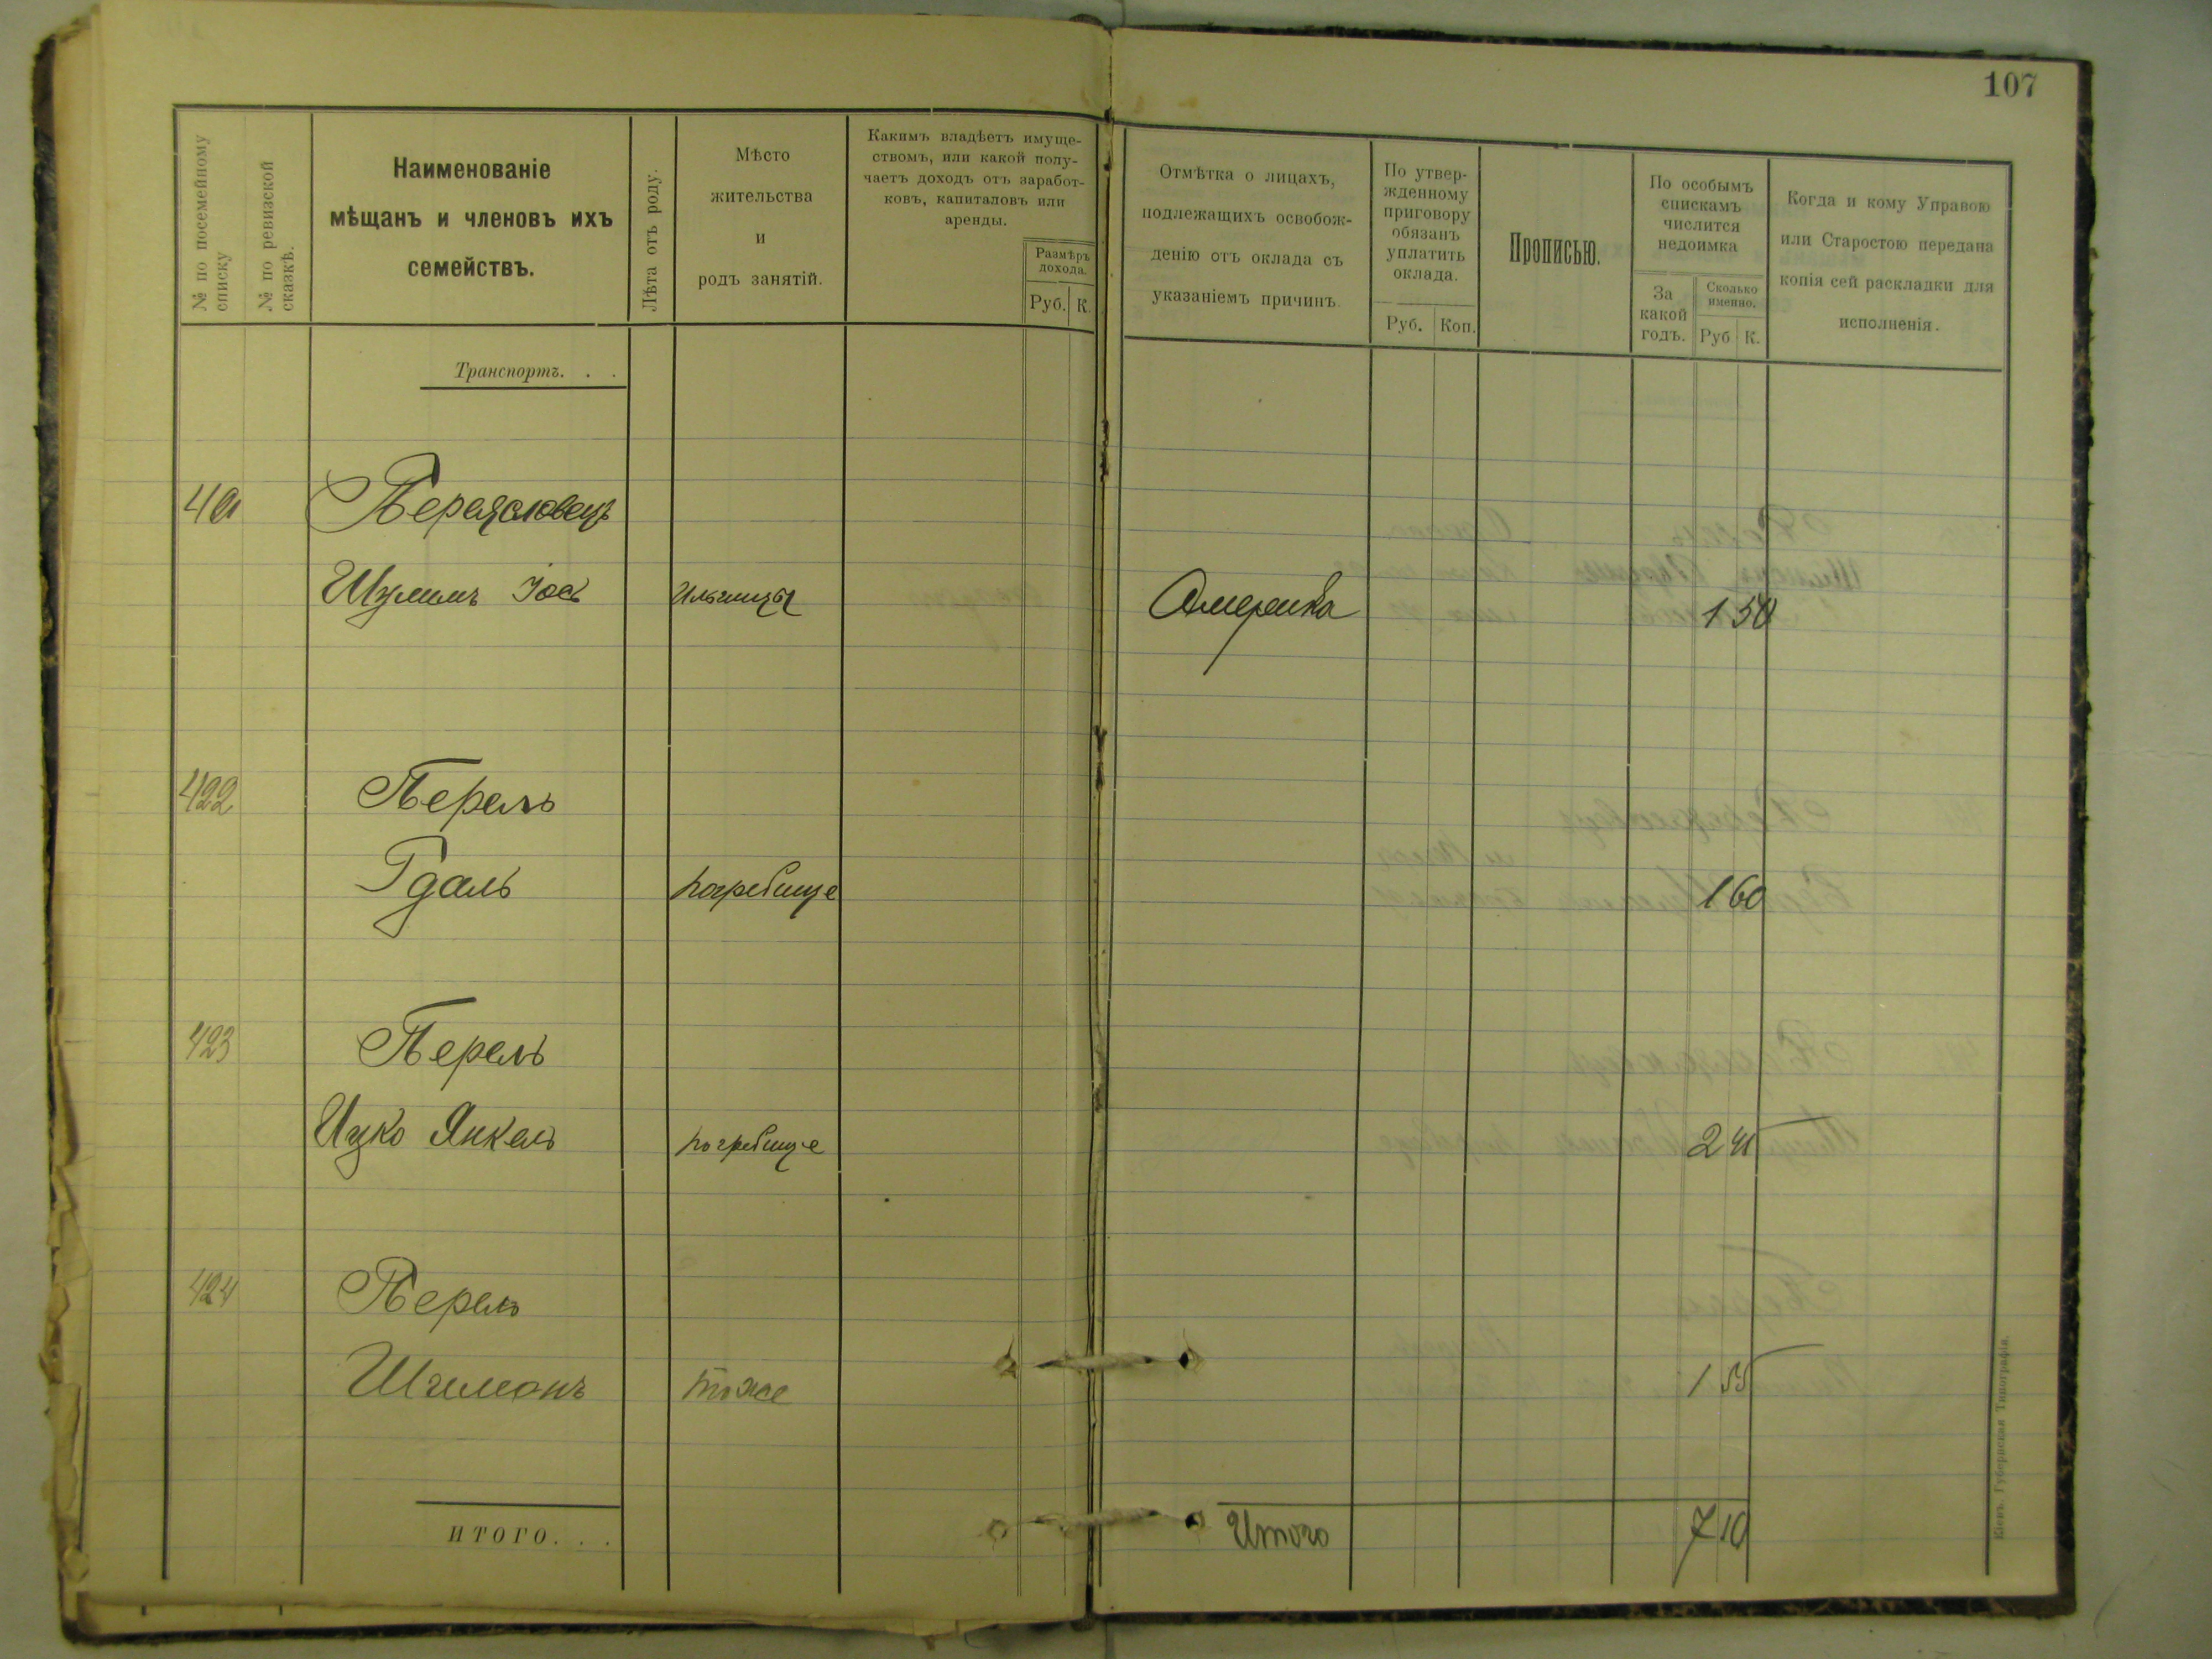 107
№ по посемейному
списку
№ по ревизской
сказкѣ.
Наименованіе
мѣщанъ и членовъ ихъ
семействъ.
Лѣта отъ роду.
Мѣсто
жительства
и
родъ занятій.
Какимъ владѣетъ имуще-
ствомъ, или какой полу-
чаетъ доходъ отъ заработ-
ковъ, капиталовъ или
аренды.
Размѣръ
дохода.
Руб. К.
Отмѣтка о лицахъ,
подлежащихъ освобож-
денію отъ оклада съ
указаніемъ причинъ.
По утвер-
жденному
приговору
обязанъ
уплатить
оклада.
Руб. Коп.
Прописью.
По особымъ
спискамъ
числится
недоимка
За
какой
годъ.
Сколько
именно.
Руб К.
Когда и кому Управою
или Старостою передана
копія сей раскладки для
исполненія.
Транспортъ. . .
Переясловецъ
Шулимъ Іосъ Ильинцы Америка 1 50
422 Перель
Гдаль погребище 1 60
423 Перель
Ицко Янкель погребище 2 45
424 Перель
Шимонъ тоже 1 55
ИТОГО. . . Итого 7 10
Кіевъ. Губернская Типографія.